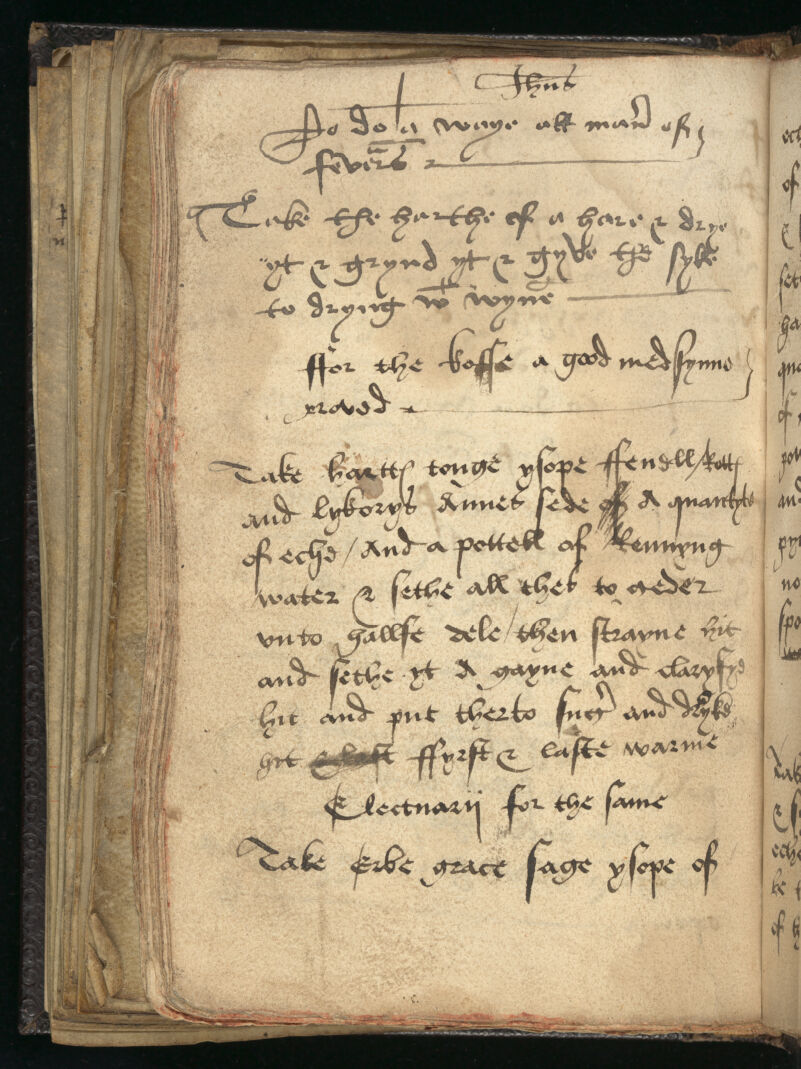 Jhus
To do a waye all man of
fevers
Take the harthe of a hare & drye
yt & grynd yt & gyve the syke
to dryng wt wyne
ffor the koffe a good medsynne
proved
Take hartt tonge ysope ffenell / Rott
and lykorys Annes sede of A quantyte
of eche / And a pottell of Rennyng
water & sethe all thes to geder
vnto hallfe dele / then strayne hit
and sethe yt A gayne and claryfyd
hit and put therto sugr and drynke
hit ffyrst & laste warme
Electuarij for the same
Take Erbe grace sage ysope of